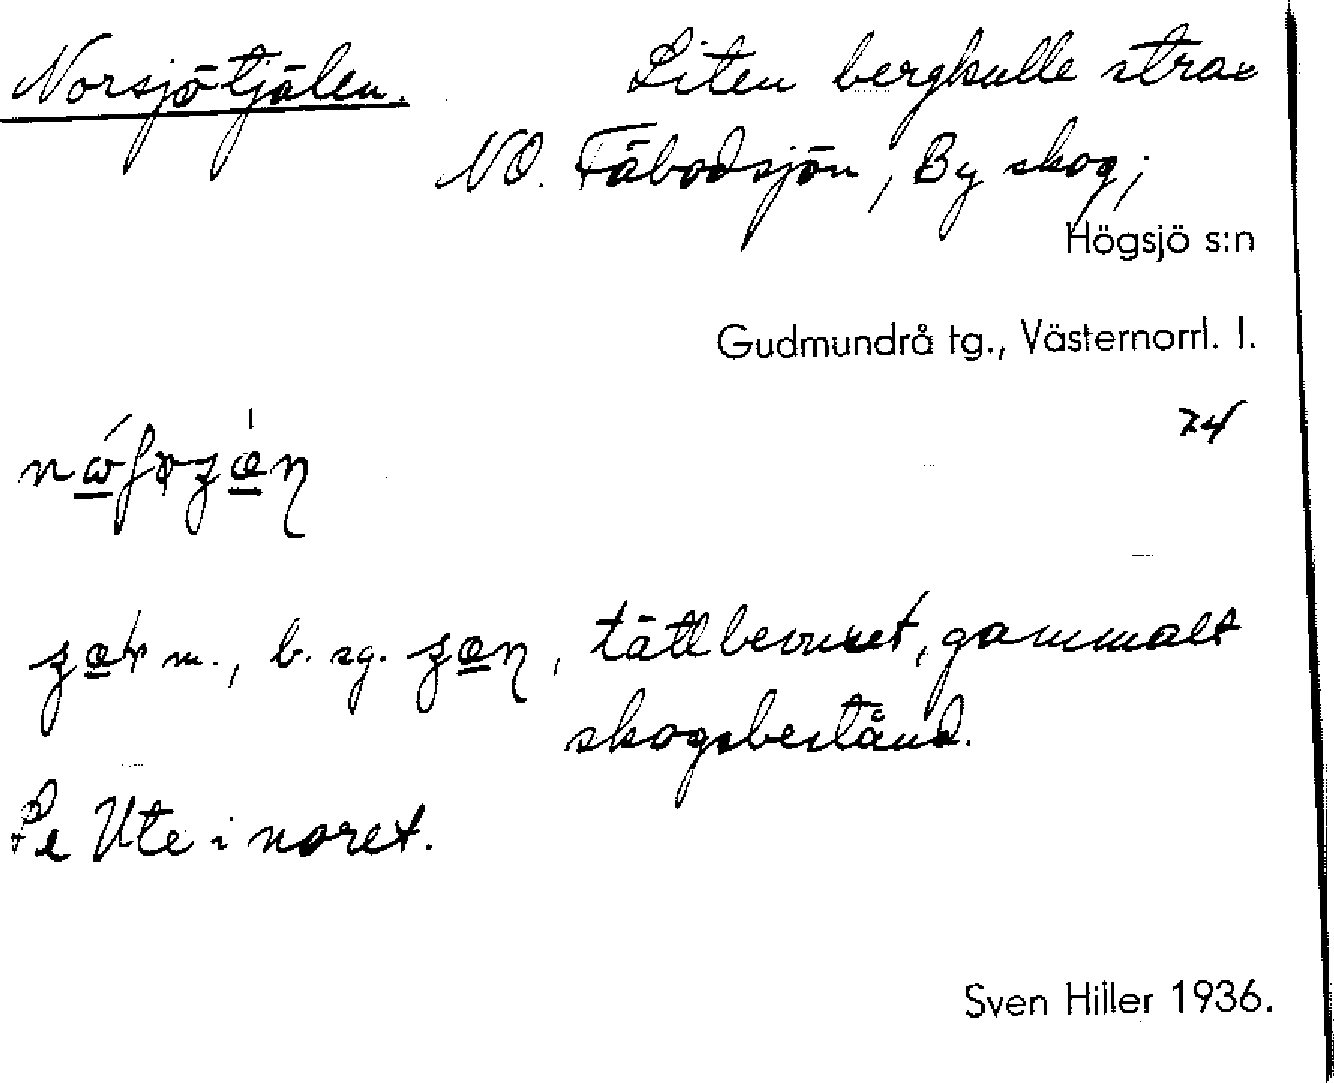 Norsjötjälen. Liten bergkulle strax
NO. Fäbodsjön, By skog;
Högsjö s:n
Gudmundrå tg., Västernorrl. l.
74
m., b. sg. , tättbevuxet, gammalt
skogsbestånd.
Pe Ute i noret.
Sven Hiller 1936.